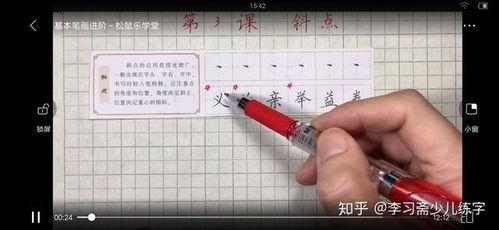 15:42
基本笔画进阶 - 松鼠乐学堂
第3课 斜点
斜点
斜点的应用范围比较广,
一般出现在字头、字右、字中,
书写时轻入笔稍顿,应注意点
的角度和位置,角度决定斜正,
位置决定重心的倾斜。
义 亲 举 益 卷
锁屏
小窗
00:24
12:12
知乎 @李习斋少儿练字